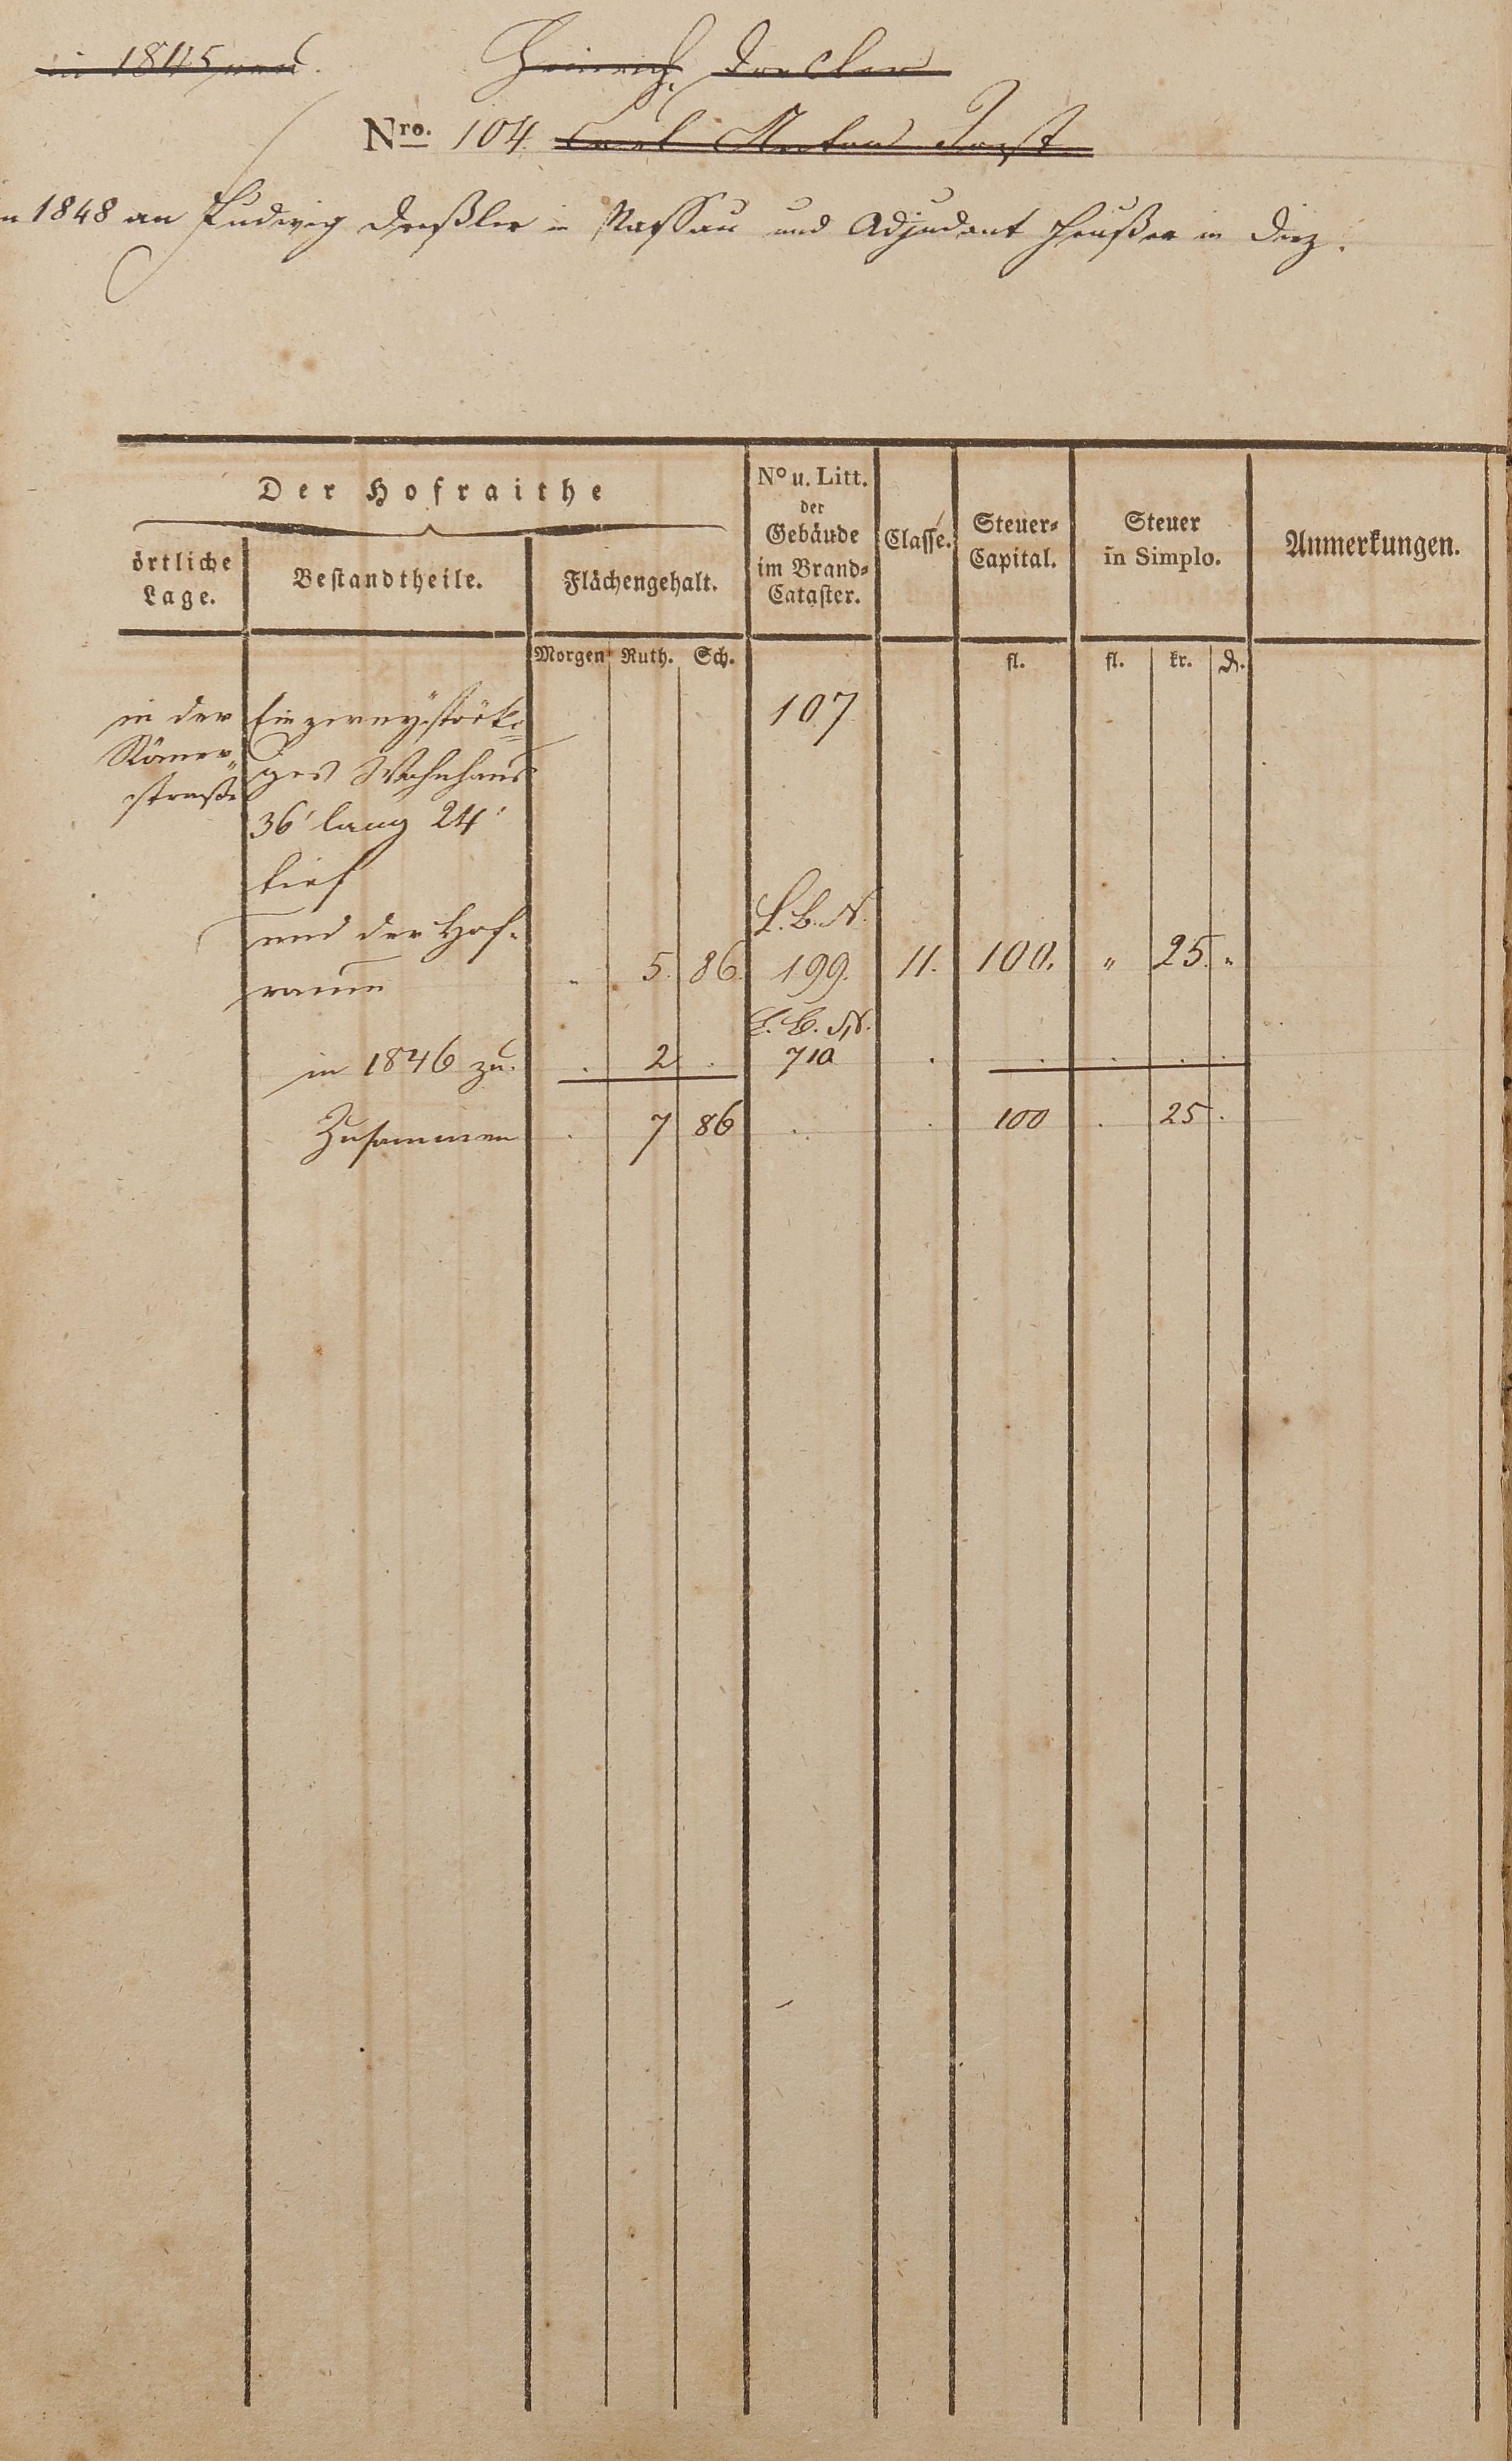 in 1845 neu.
Heinrich
Nro. 104. Carl Anton
1848 an Ludwig Dreßler in Nassau und Adjudant Heußer in Diez.
Der Hofraithe
örtliche Lage.
Bestandtheile.
Flächengehalt.
No u. Litt. der Gebäude im Brand=Cataster.
Classe.
Steuer=Capital.
Steuer in Simplo.
Anmerkungen.
Morgen Ruth. Sch. fl. fl. kr. ₰.
in der Ein zweystöck= 107
Römer= ges Wohnhaus
straße 36' lang 24'
tief
und der Hof= L. B. N.
raum " 5. 86. 199. 11. 100. " 25. "
L. B. N.
in 1846 zu. . 2 . 710 . . . . .
Zusammen . 7 86 . . 100 . 25 .